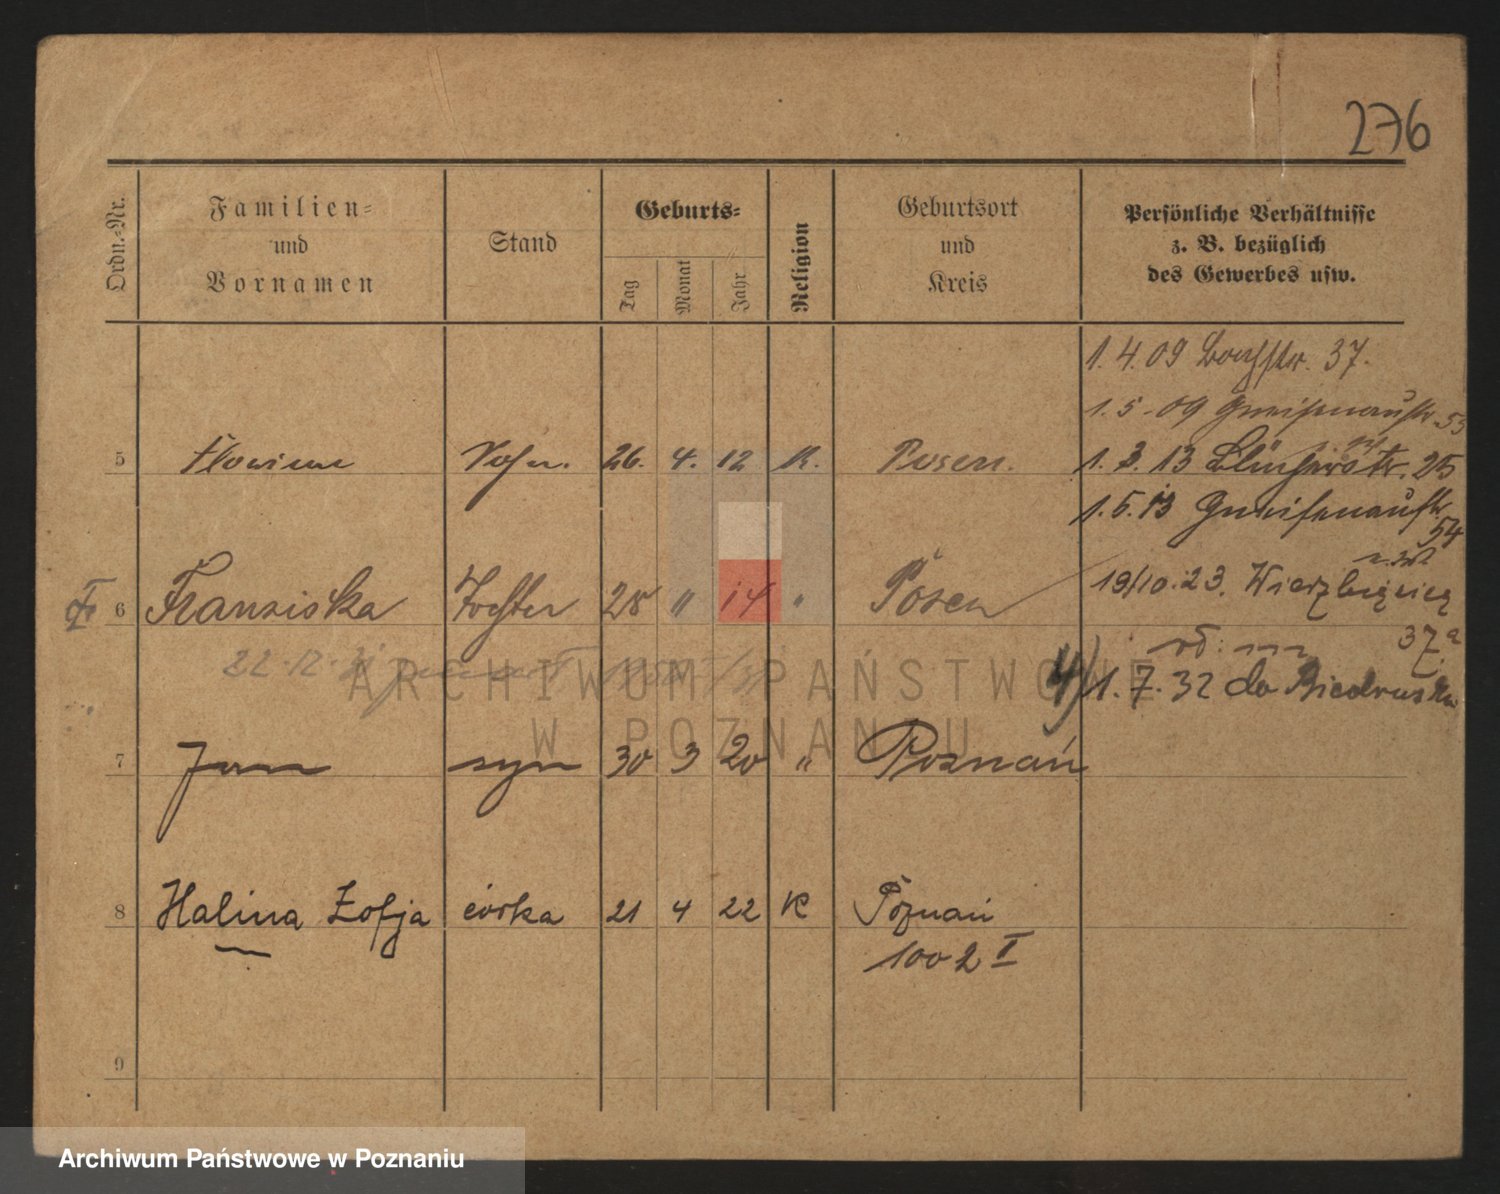 276
Ordn.-Nr.
Familien-
und
Vornamen
Stand
Geburts-
Tag
Monat
Jahr
Religion
Geburtsort
und
Kreis
Persönliche Verhältnisse
z. B. bezüglich
des Gewerbes usw.
1.4.09 37.
1.5.09 Gneisenaustr. 53
5 Florian Sohn. 26. 4. 12 K. Posen. 1.3.13 Blücherstr. 25
1.5.13 Gneisenaustr.
54
6 Franziska Tochter 28 " 14 " Posen 19/10.23. Wierzbięcice
37a
22.12.31
1.7.32 do Biedruska
ARCHIWUM PAŃSTWOWE
W POZNANIU
7 Jan syn 30 3 20 " Poznań
8 Halina Zofja córka 21 4 22 K Poznań
1002 II
9
Archiwum Państwowe w Poznaniu